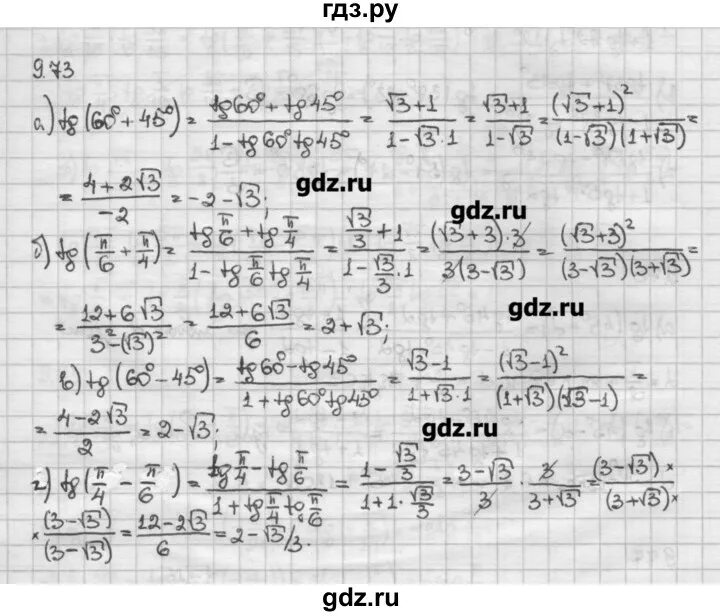 гдз.ру
9.73
а) tg(60° + 45°) = (tg60° + tg45°)/(1 - tg60° tg45°) = (√3 + 1)/(1 - √3 · 1) = (√3 + 1)/(1 - √3) = (√3 + 1)²/((1 - √3)(1 + √3)) =
= (4 + 2√3)/(-2) = -2 - √3;
gdz.ru
gdz.ru
б) tg(π/6 + π/4) = (tg π/6 + tg π/4)/(1 - tg π/6 tg π/4) = (√3/3 + 1)/(1 - √3/3 · 1) = ((√3 + 3) · 3)/(3(3 - √3)) = (√3 + 3)²/((3 - √3)(3 + √3)) =
= (12 + 6√3)/(3² - (√3)²) = (12 + 6√3)/6 = 2 + √3;
gdz.ru
в) tg(60° - 45°) = (tg60° - tg45°)/(1 + tg60° tg45°) = (√3 - 1)/(1 + √3 · 1) = (√3 - 1)²/((1 + √3)(√3 - 1)) =
= (4 - 2√3)/2 = 2 - √3;
gdz.ru
г) tg(π/4 - π/6) = (tg π/4 - tg π/6)/(1 + tg π/4 tg π/6) = (1 - √3/3)/(1 + 1 · √3/3) = (3 - √3)/3 · 3/(3 + √3) = (3 - √3)/(3 + √3) ×
× (3 - √3)/(3 - √3) = (12 - 2√3)/6 = 2 - √3/3.
gdz.ru
gdz.ru